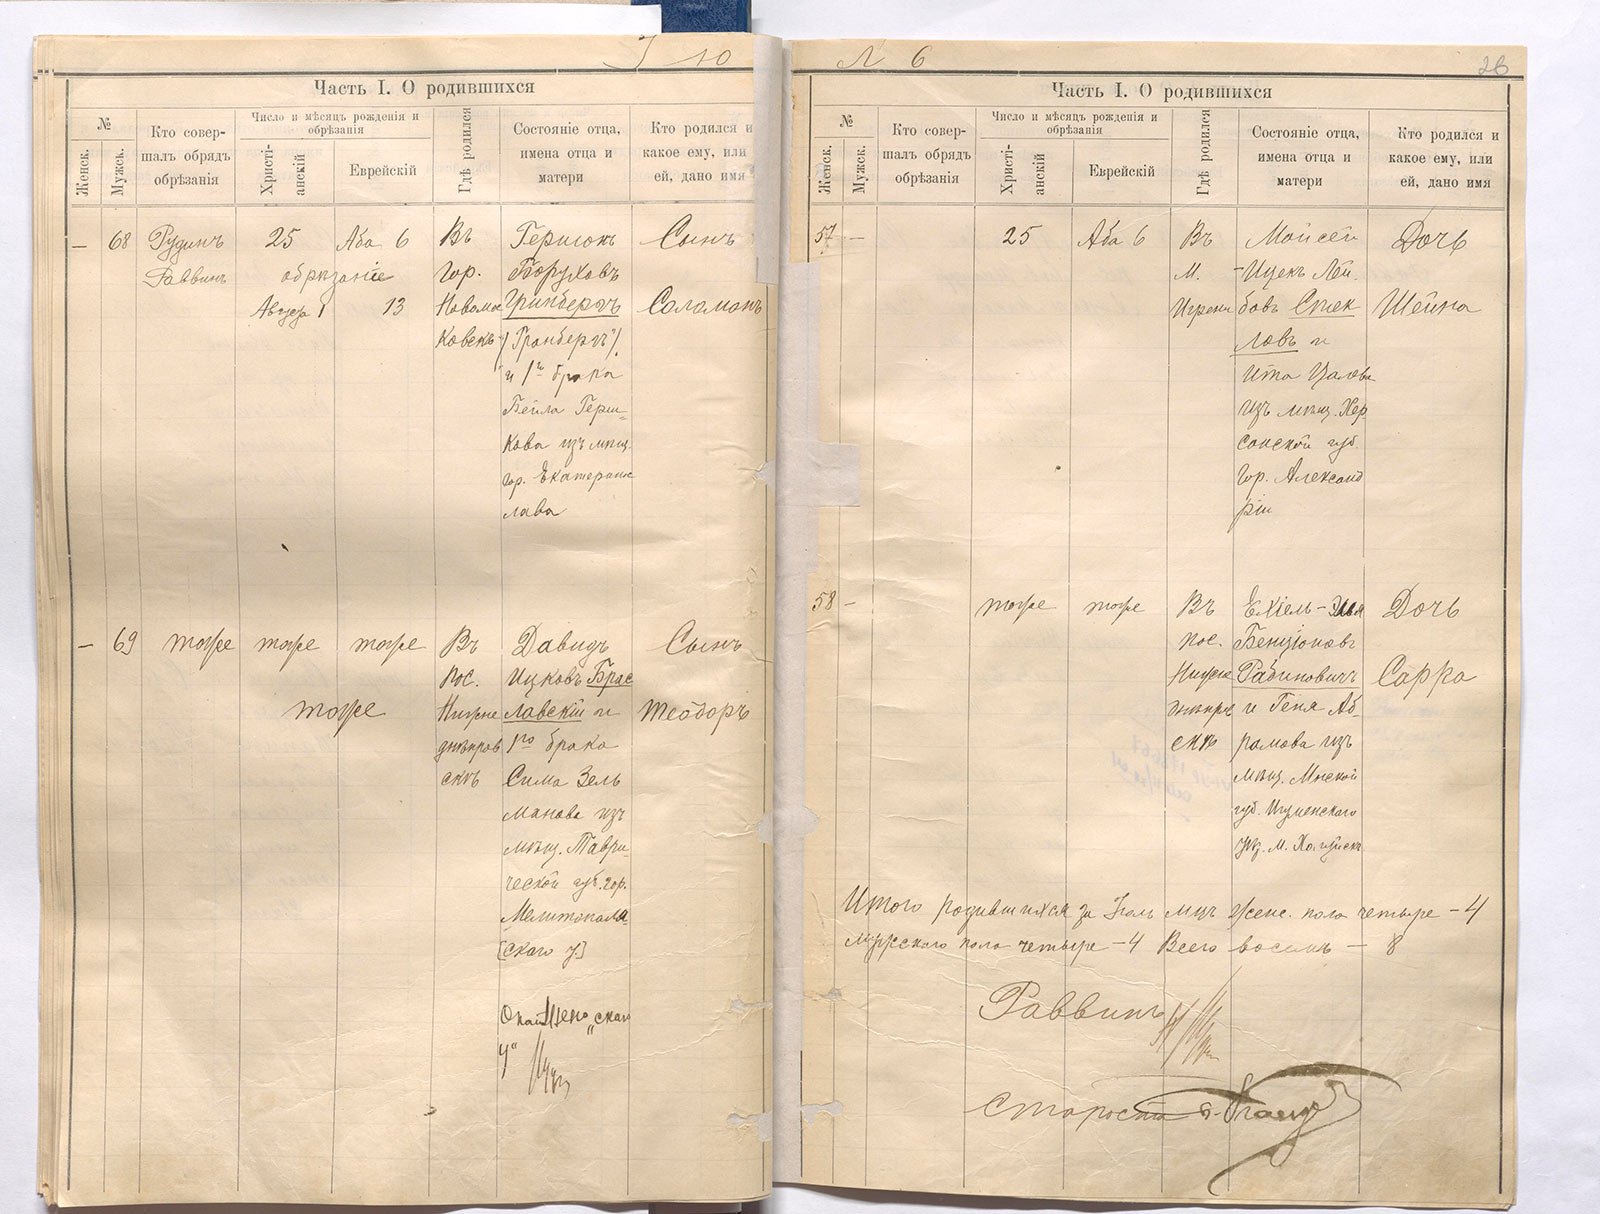 І ю
Часть I. О родившихся
№
Женск.
Мужск.
Кто совер-
шалъ обрядъ
обрѣзанія
Число и мѣсяцъ рожденія и
обрѣзанія
Христі-
анскій
Еврейскій
Гдѣ родился
Состояніе отца,
имена отца и
матери
Кто родился и
какое ему, или
ей, дано имя
—
68
Рудинъ
Раввинъ
25
Аба 6
обрѣзаніе
Августа 1
13
Въ
гор.
Новомос
ковскъ
Гершонъ
Боруховъ
Гринбергъ
("Гранбергъ")
и 1го брака
Бейла Герш=
кова изъ мѣщ.
гор. Екатеринос
лава
Сынъ
Соломонъ
—
69
тоже
тоже
тоже
тоже
Въ
пос.
Нижне
днѣпров
скъ
Давидъ
Ицковъ Брас
лавскій и
1го брака
Сима Зель
манова изъ
мѣщ. Таври-
ческой губ. гор.
Мелитополя
[скаго у.]
"скаго
у"
Сынъ
Теодоръ
Л 6
26
Часть I. О родившихся
№
Женск.
Мужск.
Кто совер-
шалъ обрядъ
обрѣзанія
Число и мѣсяцъ рожденія и
обрѣзанія
Христі-
анскій
Еврейскій
Гдѣ родился
Состояніе отца,
имена отца и
матери
Кто родился и
какое ему, или
ей, дано имя
57
—
25
Аба 6
Въ
м.
Игрени
Мойсей
-Ицекъ Лей
бовъ Стек
ловъ и
Ита Цалева
изъ мѣщ. Хер
сонской губ.
гор. Александ
ріи
Дочь
Шейна
58
—
тоже
тоже
Въ
пос.
Нижне
днѣпров
скъ
Ехіель-Илья
Бенціоновъ
Рабиновичъ
и Геня Аб-
рамова изъ
мѣщ. Мнской
губ. Игуменскаго
уѣз. м.
Дочь
Сарра
Итого родившихся за Іюль мцъ женс. пола четыре – 4
мужскаго пола четыре – 4 Всего восемь – 8
Раввинъ
Староста